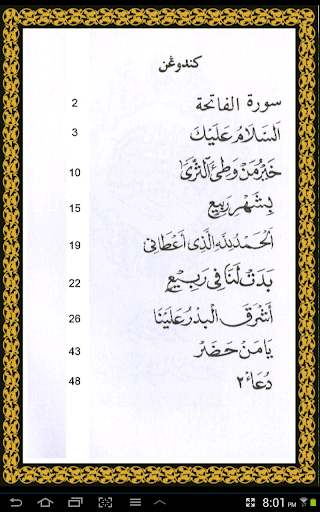 كندوڠن
سورة الفاتحة 2
اَلسَّلَامُ عَلَيْكَ 3
خَيْرُ مَنْ وَطِئَ الثَّرَىٰ 10
بِشَهْرِ رَبِيعِ 15
اَلْحَمْدُ لِلّٰهِ الَّذِي أَعْطَانِي 19
بَدَتْ لَنَا فِي رَبِيْعٍ 22
أَشْرَقَ الْبَدْرُ عَلَيْنَا 26
يَا مَنْ حَضَرْ 43
دُعَاء٢ 48
8:01 PM